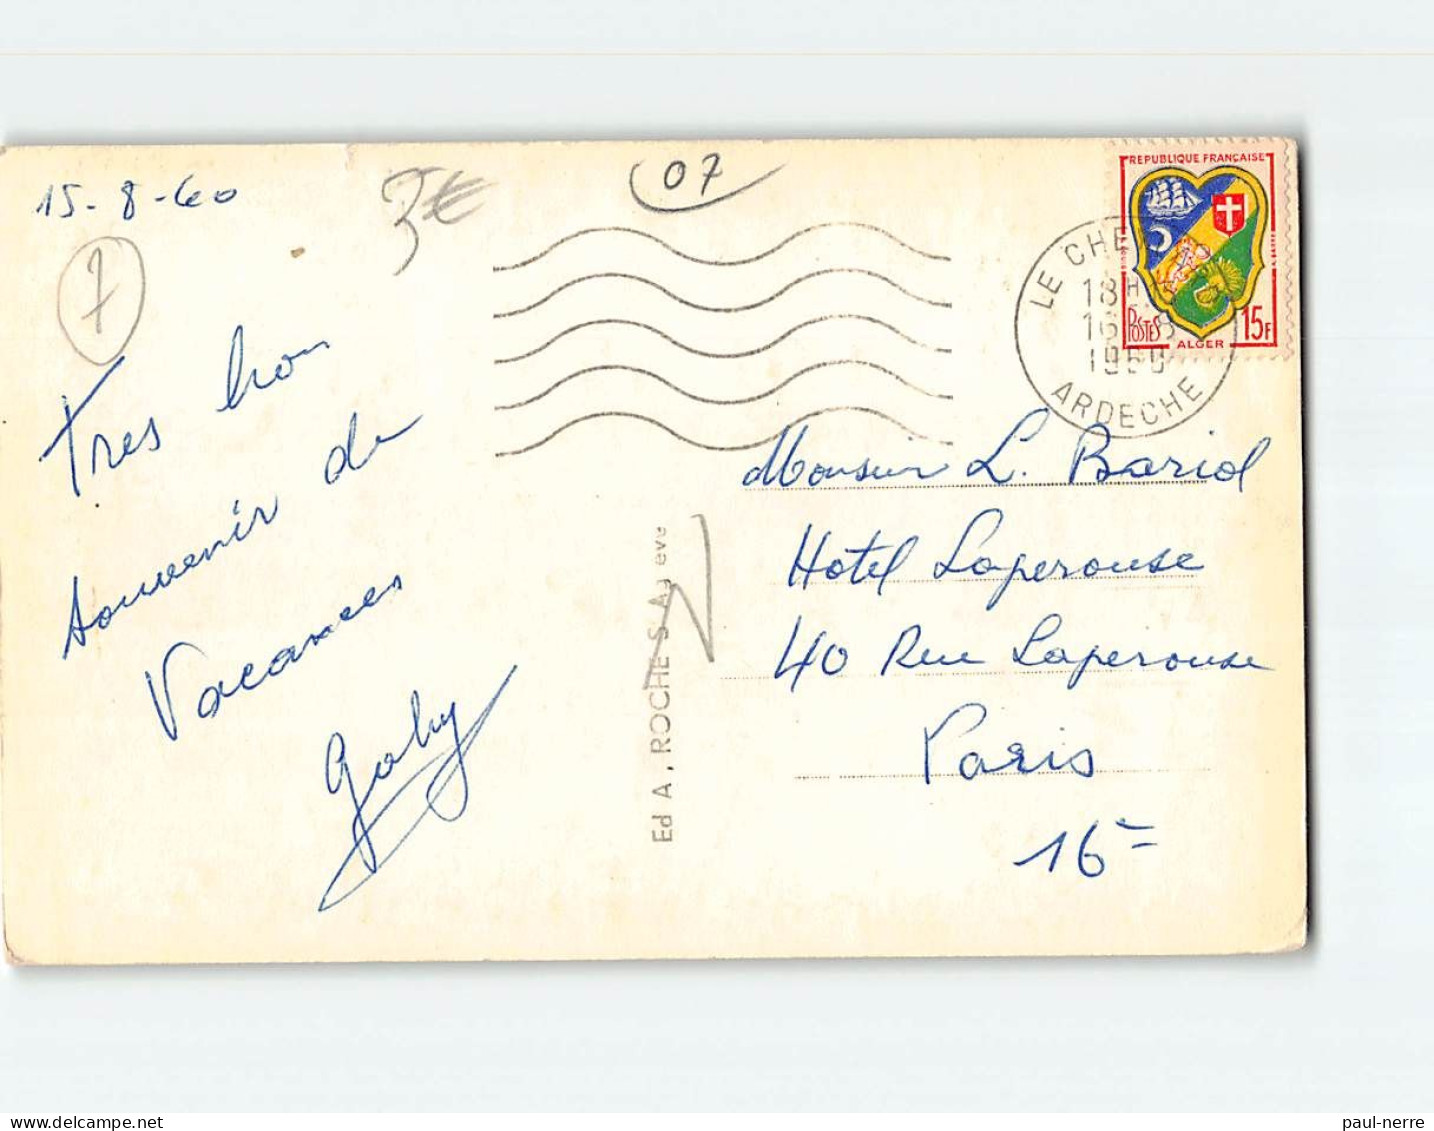 15-8-60
3€
07
7
Tres bon
souvenir de
Vacances
Gaby
Ed A. ROCHE S. Agreve
REPUBLIQUE FRANÇAISE
POSTES
15F
ALGER
LE CHEYLARD
18H
16 8
1960
ARDECHE
Monsieur L. Bariol
Hotel Laperouse
40 Rue Laperouse
Paris
16e
delcampe.net
paul-nerre